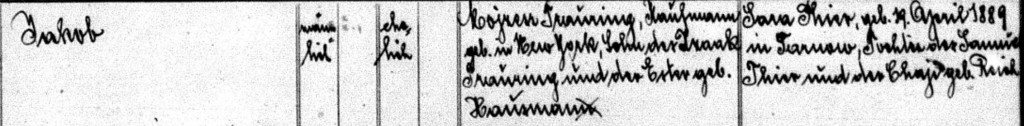 Jakob
männ-
lich
ehe-
lich
Mojzes Trauring, Kaufmann
geb. in New York, Sohn der Izaak
Trauring und der Ester geb.
Hausmann
Sara Thier, geb. 29. April 1889
in Tarnow, Tochter der Samuel
Thier und der Chaje geb. Reich